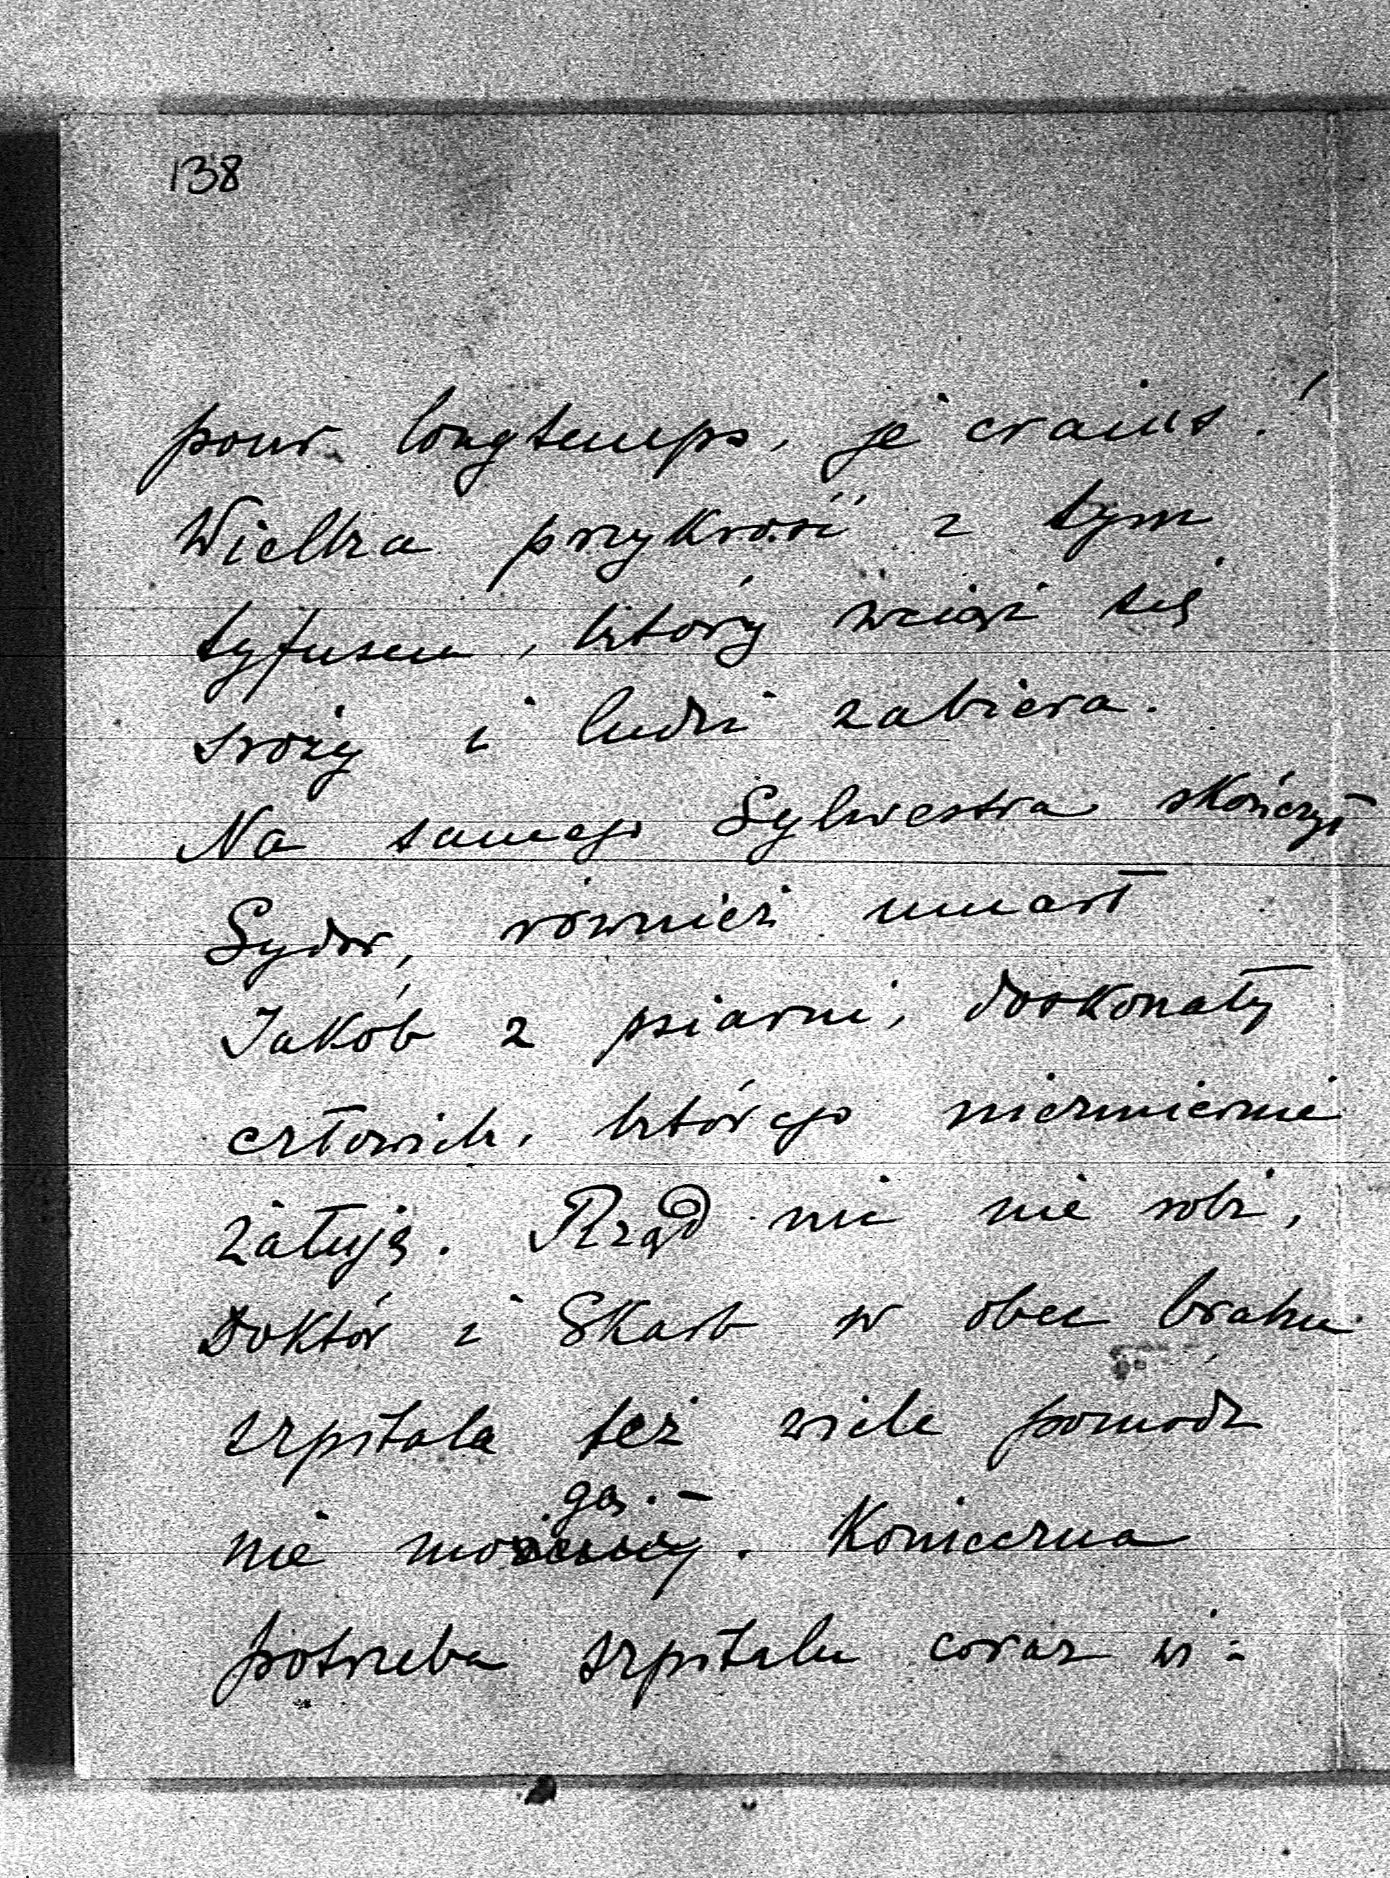 138
pour longtemps, je crains!
Wielka przykrość z tym
tyfusem, który wciąż się
sroży i ludzi zabiera.
Na samego Sylwestra skończył
Sydor, również umarł
Jakób z psiarni, doskonały
człowiek, którego niezmiernie
żałuję. Rząd nic nie robi,
Doktór i Skarb w obec braku
szpitala też wiele pomódz
gą. –
nie mo. Konieczna
potrzeba szpitalu coraz wi-